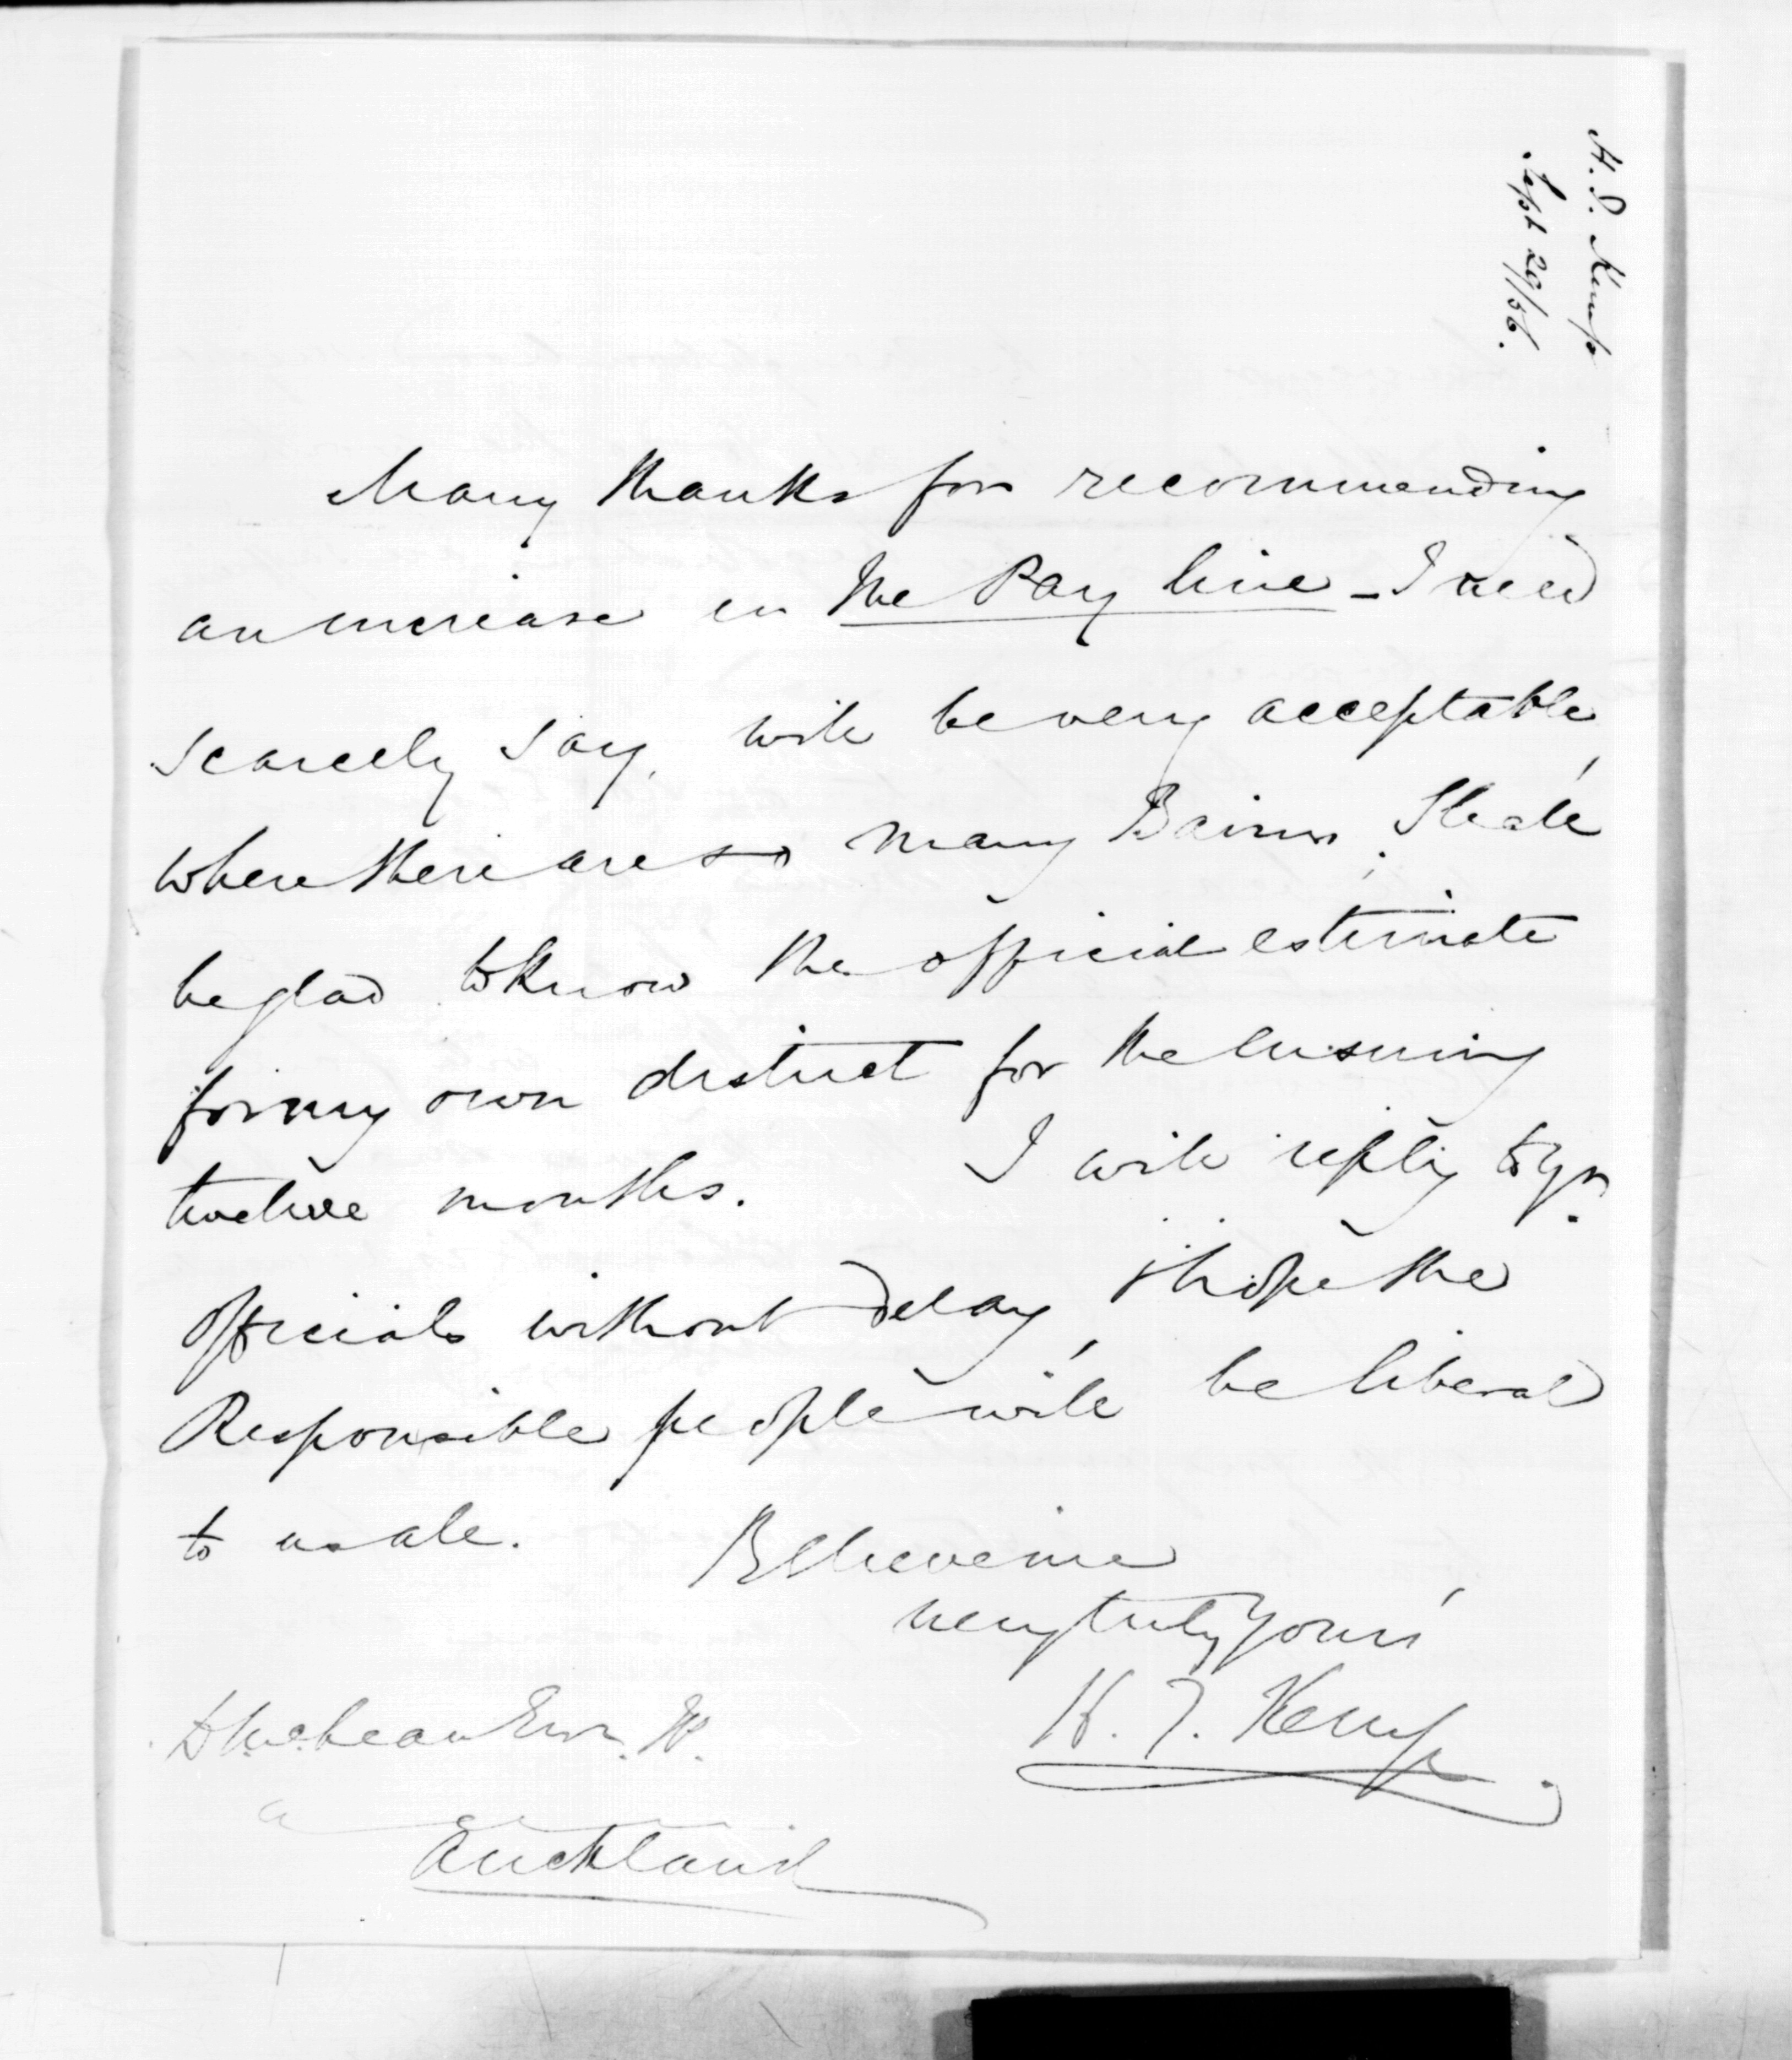 H. T. Kemp
Sept 29/56.
Many thanks for recommending
an increase in the Pay line - I need
scarcely say, will be very acceptable,
where there are so many Bairns; I shall
be glad to know the official estimate
for my own district for the ensuing
twelve months. I will reply to yr.
officials without delay, & hope the
Responsible people will be liberal
to us all. Believe me
very truly yours
H. T. Kemp
D McLean Esqr.
Auckland